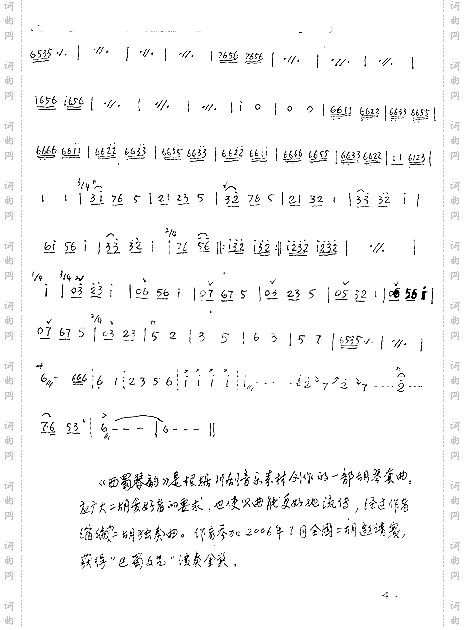 6535 ⁄⁄. | ⁄⁄. | ⁄⁄. | ⁄⁄. | 7656 7656 | ⁄⁄. | ⁄⁄. | ⁄⁄. |
1656 1656 | ⁄⁄. | ⁄⁄. | ⁄⁄. | i 0 | 0 0 | 6611 6623 | 6633 6655 |
6666 6611 | 6622 6633 | 6635 6633 | 6622 6611 | 6666 6655 | 6633 6622 | 1 6123 |
1 1 | 3/4 31 76 5 | 21 23 5 | 32 76 5 | 21 32 1 | 33 32 i |
61 56 i | 33 32 i | 2/4 76 56 |: i232 i32 :| i232 i232 | ⁄⁄. |
1/4 i | 3/4 03 23 i | 06 56 i | 07 67 5 | 03 23 5 | 05 32 1 | 06 56 i |
07 67 5 | 2/4 03 23 | 5 2 | 3 5 | 6 3 | 5 7 | 6535 ⁄⁄. | ⁄⁄. |
6 - 666 | 6 1 | 2 3 5 6 | i i i i | i
76 53 | 6 - - - | 6 - - - ||
《西蜀琴韵》是根据川剧音乐素材创作的一部胡琴套曲。
应广大二胡爱好者的要求，也使乐曲能更好地流传，经过作者
缩编二胡独奏曲。作者参加2006年1月全国二胡邀请赛，
获得“巴蜀文艺”演奏金奖。
4
词曲网
词曲网
词曲网
词曲网
词曲网
词曲网
词曲网
词曲网
词曲网
词曲网